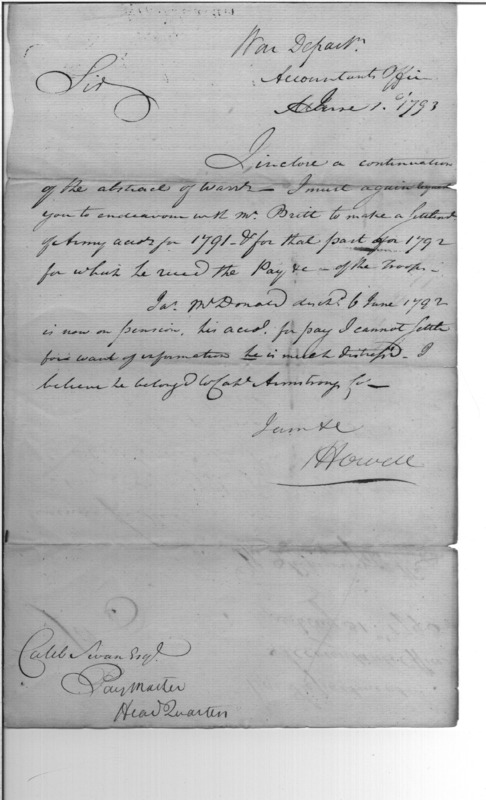 War Departt.
Accountants Office
June 1. 1793
Sir
I inclose a continuation
of the abstract of warrts — I must again request
you to endeavour with Mr. Britt to make a settlemt
of Army accts for 1791 & for that part of 1792
for which he recd the Pay &c — of the troops —
Jas. McDonald dischd. 6 June 1792
is now on pension, his acct. for pay I cannot settle
for want of information he is much distress'd. I
believe he belong'd to Capt. Armstrong
I am &c
J Howell
Caleb Swan Esqr.
PayMaster
Head Quarters